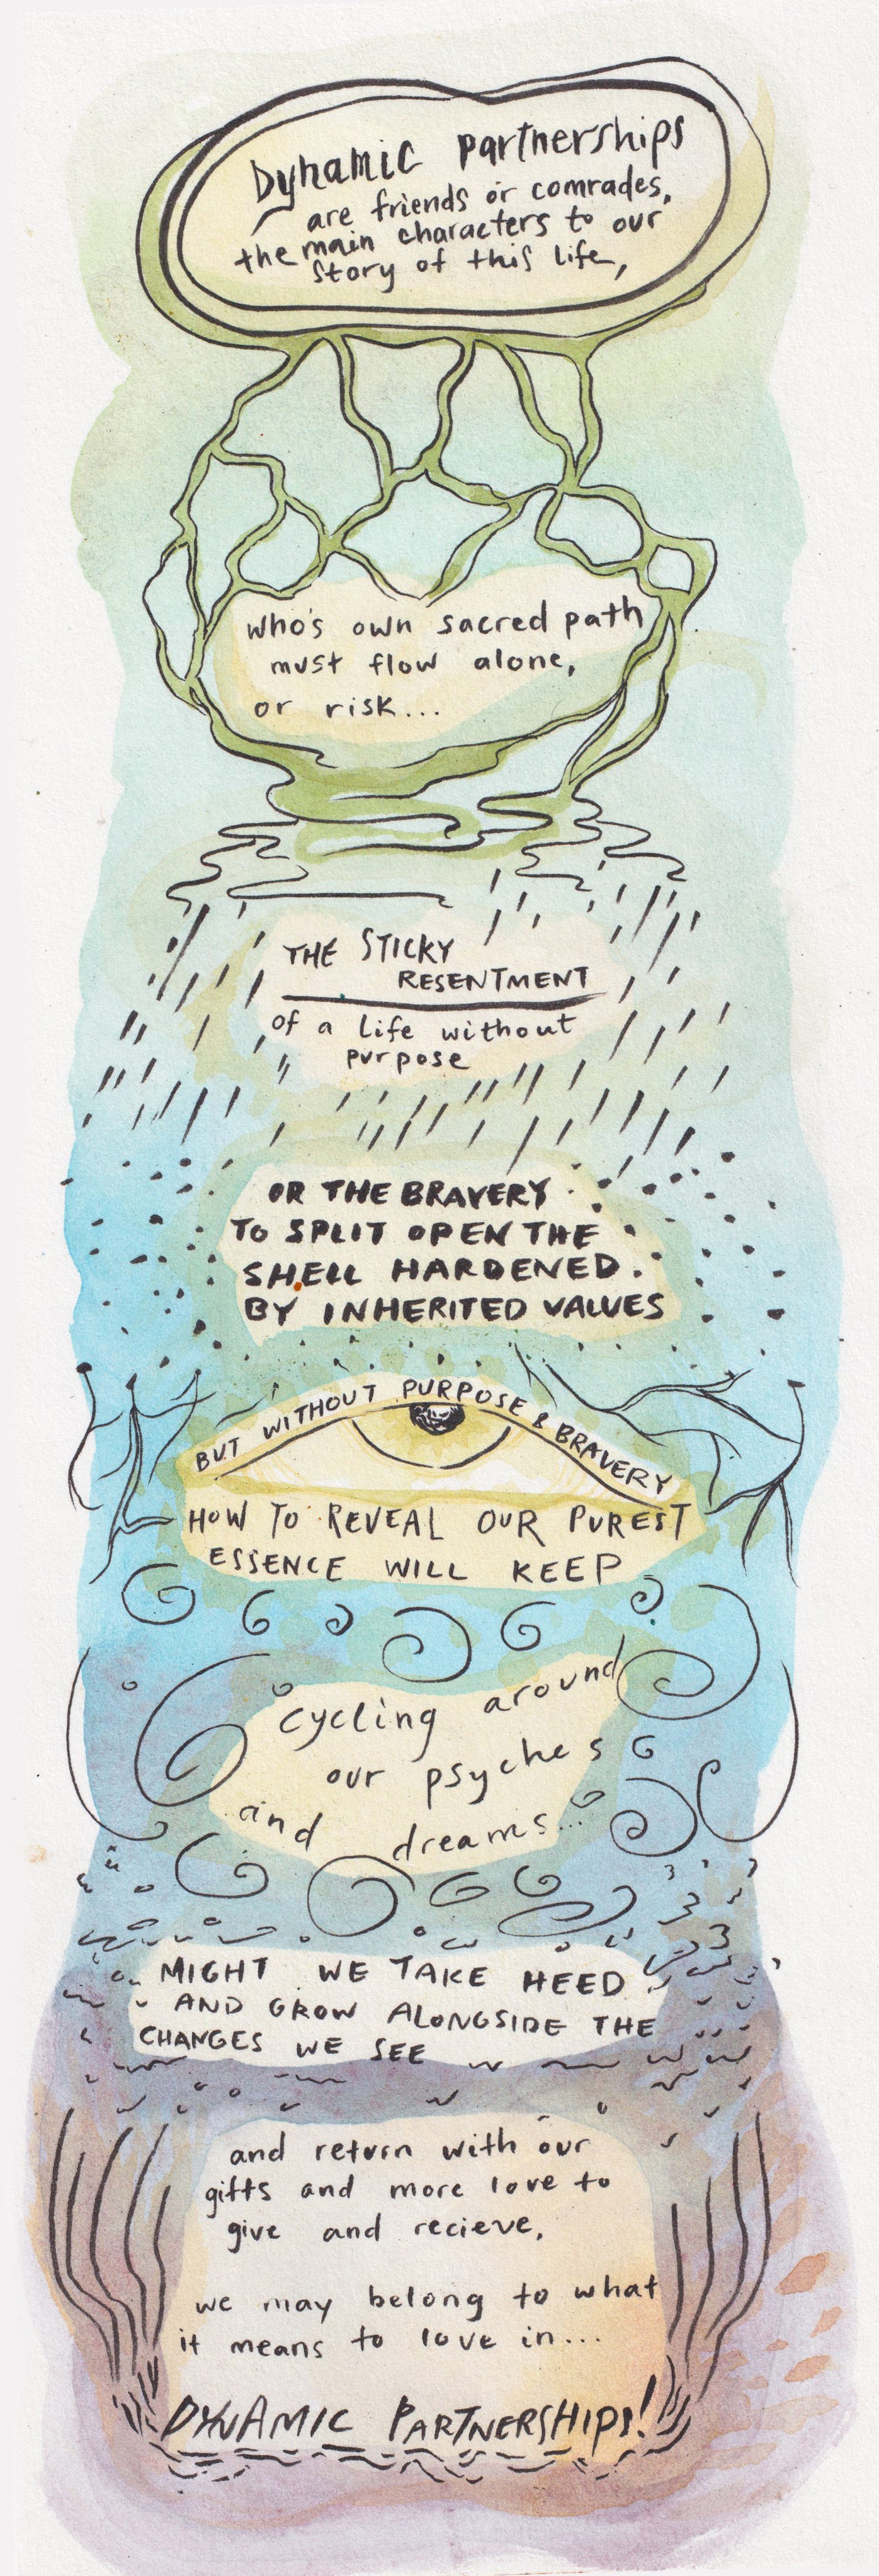 Dynamic partnerships
are friends or comrades,
the main characters to our
story of this life,
who's own sacred path
must flow alone,
or risk...
THE STICKY
RESENTMENT
of a life without
purpose
OR THE BRAVERY
TO SPLIT OPEN THE
SHELL HARDENED.
BY INHERITED VALUES
BUT WITHOUT PURPOSE & BRAVERY
HOW TO REVEAL OUR PUREST
ESSENCE WILL KEEP
cycling around
our psyches
and dreams...
MIGHT WE TAKE HEED
AND GROW ALONGSIDE THE
CHANGES WE SEE
and return with our
gifts and more love to
give and recieve,
we may belong to what
it means to love in...
DYNAMIC PARTNERSHIPS!